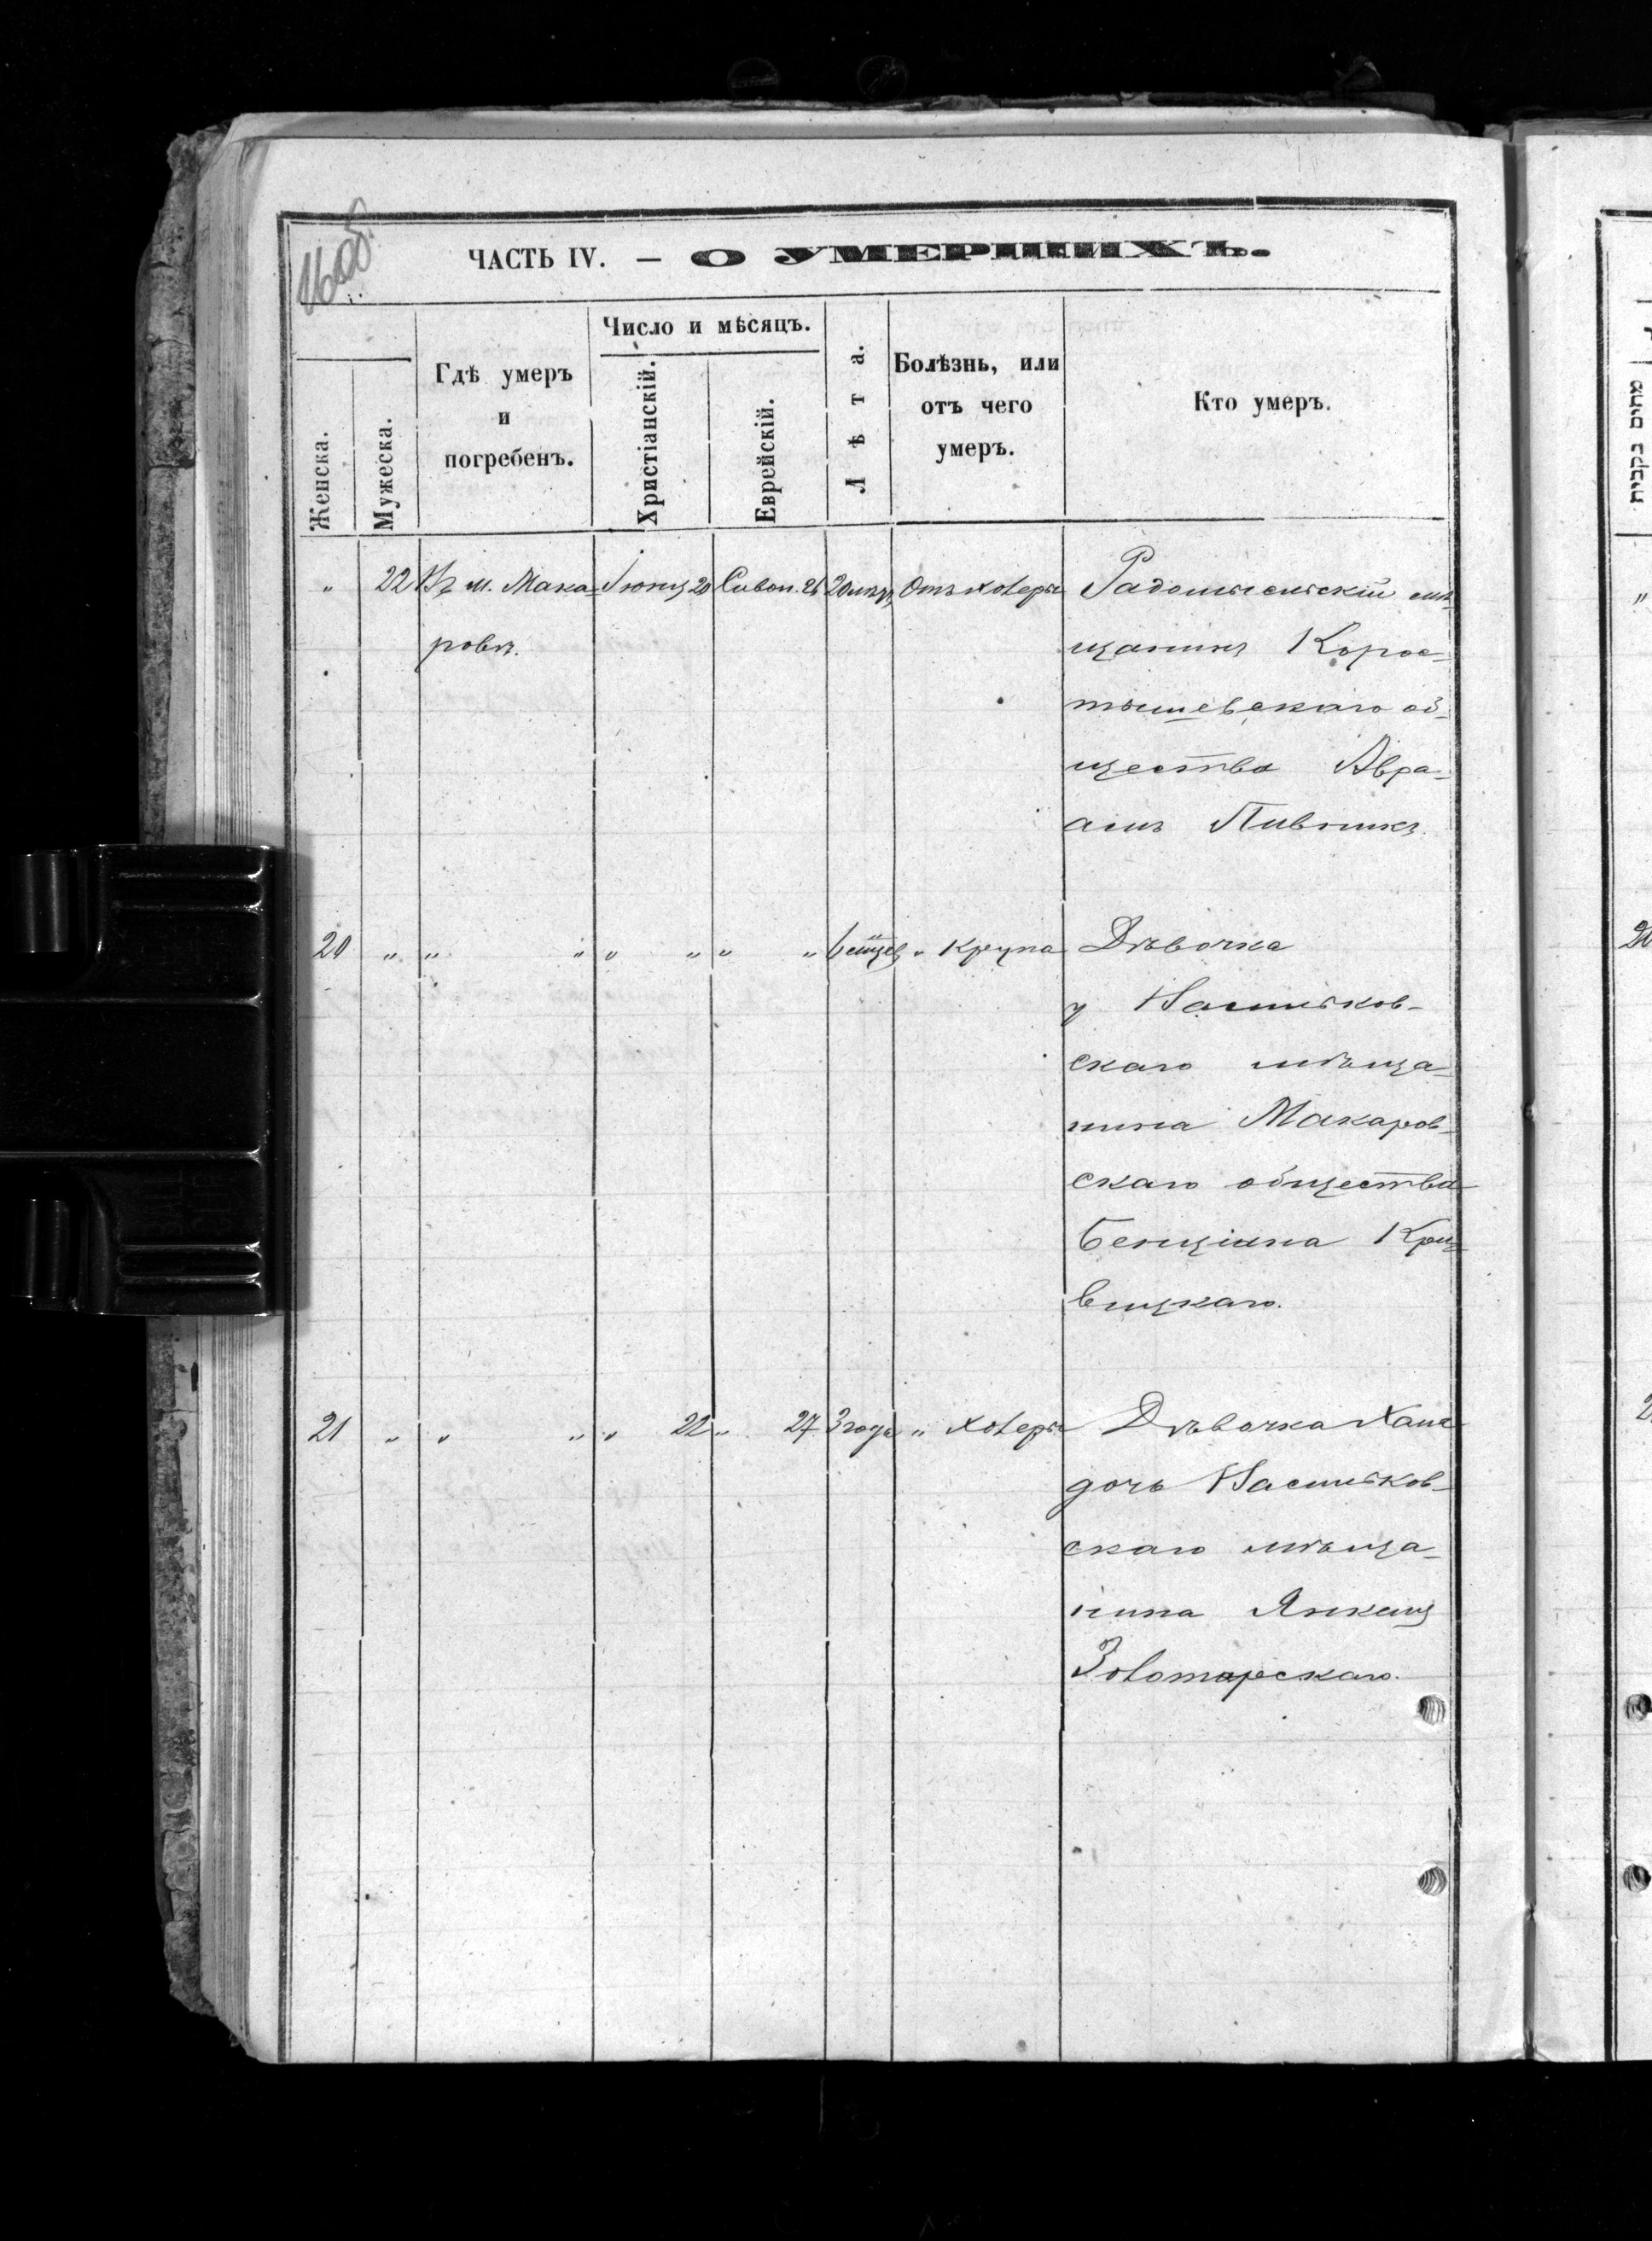 16об.
ЧАСТЬ IV. — О УМЕРШИХЪ.
Женска.
Мужеска.
Гдѣ умеръ
и
погребенъ.
Число и мѣсяцъ.
Христіанскій.
Еврейскій.
Лѣта.
Болѣзнь, или
отъ чего
умеръ.
Кто умеръ.
" 22 Въ м. Мака- Іюня 20 Сивон. 25 20 лѣтъ Отъ холеры Радомысльскій мѣ-
ровѣ. щанинъ Корос-
тышевскаго об-
щества Авра-
амъ Пивникъ.
20 " " " " " " " 6 мѣсяц. " крупа Дѣвочка
у Васильков-
скаго мѣща-
нина Макаров-
скаго общества
Бенціана
вицкаго.
21 " " " " 22 " 27 3 года " холеры Дѣвочка Хана
дочь Васильков-
скаго мѣща-
нина Янкеля
Золотарскаго.
מתים